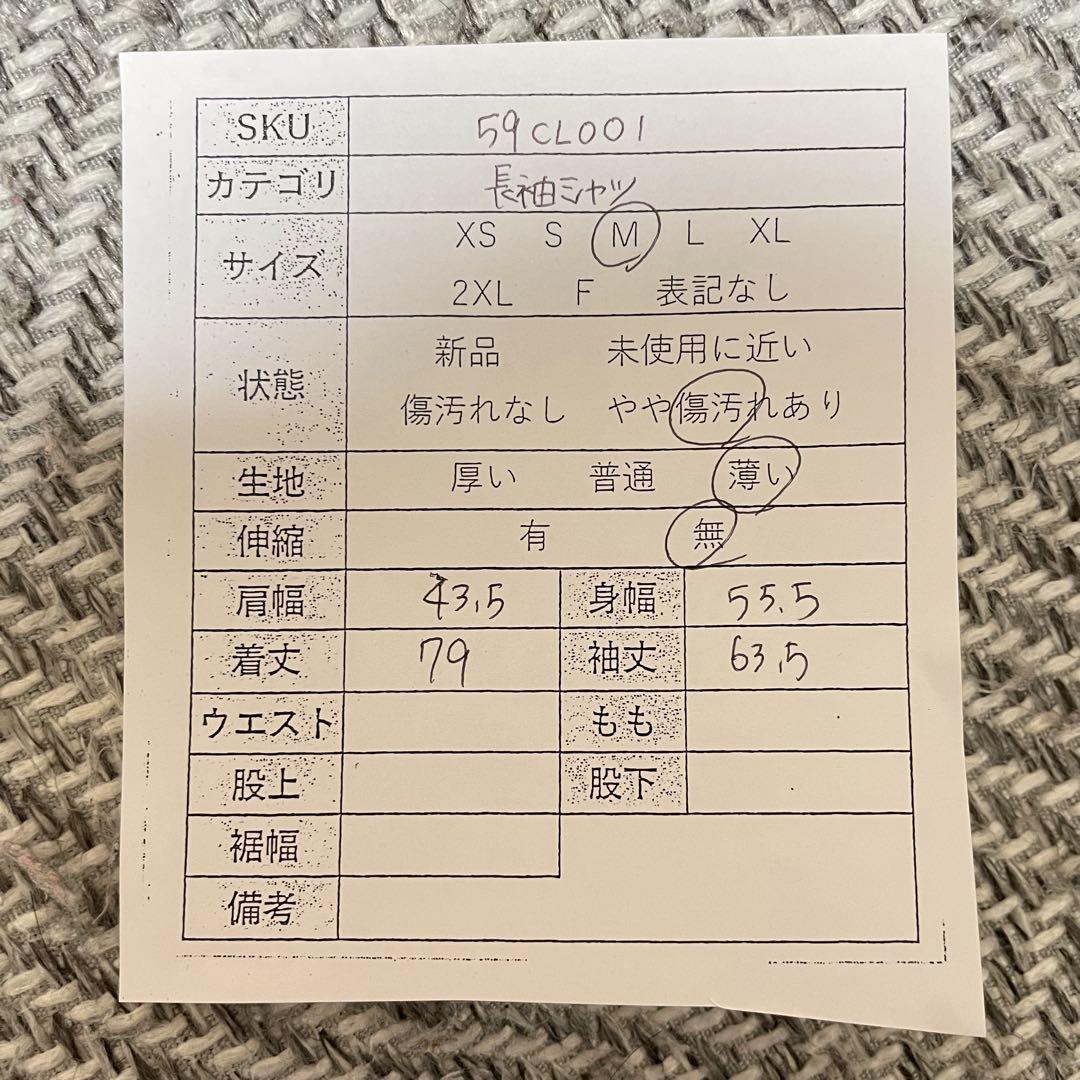 SKU 59CL001
カテゴリ 長袖シャツ
サイズ XS S M L XL
2XL F 表記なし
状態 新品 未使用に近い
傷汚れなし やや傷汚れあり
生地 厚い 普通 薄い
伸縮 有 無
肩幅 43.5 身幅 55.5
着丈 79 袖丈 63.5
ウエスト もも
股上 股下
裾幅
備考